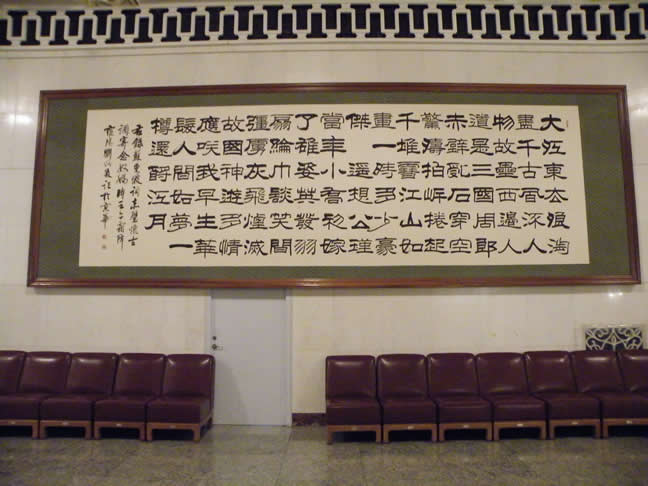 大江東去浪淘
盡千古風流人
物故壘西邊人
道是三國周郎
赤壁亂石穿空
驚濤拍岸捲起
千堆雪江山如
畫一時多少豪
傑 遙想公瑾
當年小喬初嫁
了雄姿英發羽
扇綸巾談笑間
彊虜灰飛煙滅
故國神遊多情
應咲我早生華
髮人間如夢一
樽還酹江月
右錄蘇東坡詞赤壁懷古
調寄念奴嬌時壬午霜降
於京華